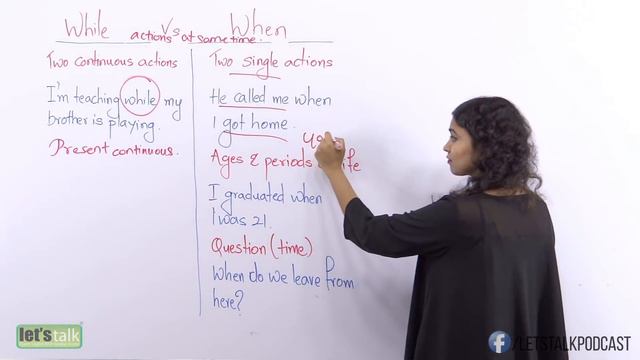 While Vs When
actions at same time.
Two continuous actions
I'm teaching while my
brother is playing.
Present continuous.
Two single actions
He called me when
I got home.
Ages & periods life
I graduated when
I was 21.
Question (time)
When do we leave from
here?
let's talk
f/LETSTALKPODCAST